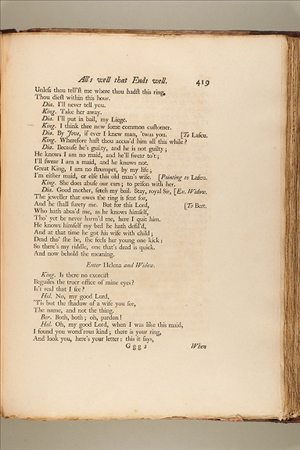 All's well that Ends well. 419
Unless thou tell'st me where thou hadst this ring,
Thou diest within this hour.
Dia. I'll never tell you.
King. Take her away.
Dia. I'll put in bail, my Liege.
King. I think thee now some common customer.
Dia. By Jove, if ever I knew man, 'twas you. [To Lafeu.
King. Wherefore hast thou accus'd him all this while?
Dia. Because he's guilty, and he is not guilty;
He knows I am no maid, and he'll swear to't;
I'll swear I am a maid, and he knows not.
Great King, I am no strumpet, by my life;
I'm either maid, or else this old man's wife. [Pointing to Lafeu.
King. She does abuse our ears; to prison with her.
Dia. Good mother, fetch my bail. Stay, royal Sir, [Ex. Widow.
The jeweller that owes the ring is sent for,
And he shall surety me. But for this Lord, [To Bert.
Who hath abus'd me, as he knows himself,
Tho' yet he never harm'd me, here I quit him.
He knows himself my bed he hath defil'd,
And at that time he got his wife with child;
Dead tho' she be, she feels her young one kick:
So there's my riddle, one that's dead is quick.
And now behold the meaning.
Enter Helena and Widow.
King. Is there no exorcist
Beguiles the truer office of mine eyes?
Is't real that I see?
Hel. No, my good Lord,
'Tis but the shadow of a wife you see,
The name, and not the thing.
Ber. Both, both; oh, pardon!
Hel. Oh, my good Lord, when I was like this maid,
I found you wond'rous kind; there is your ring,
And look you, here's your letter: this it says,
G g g 2 When